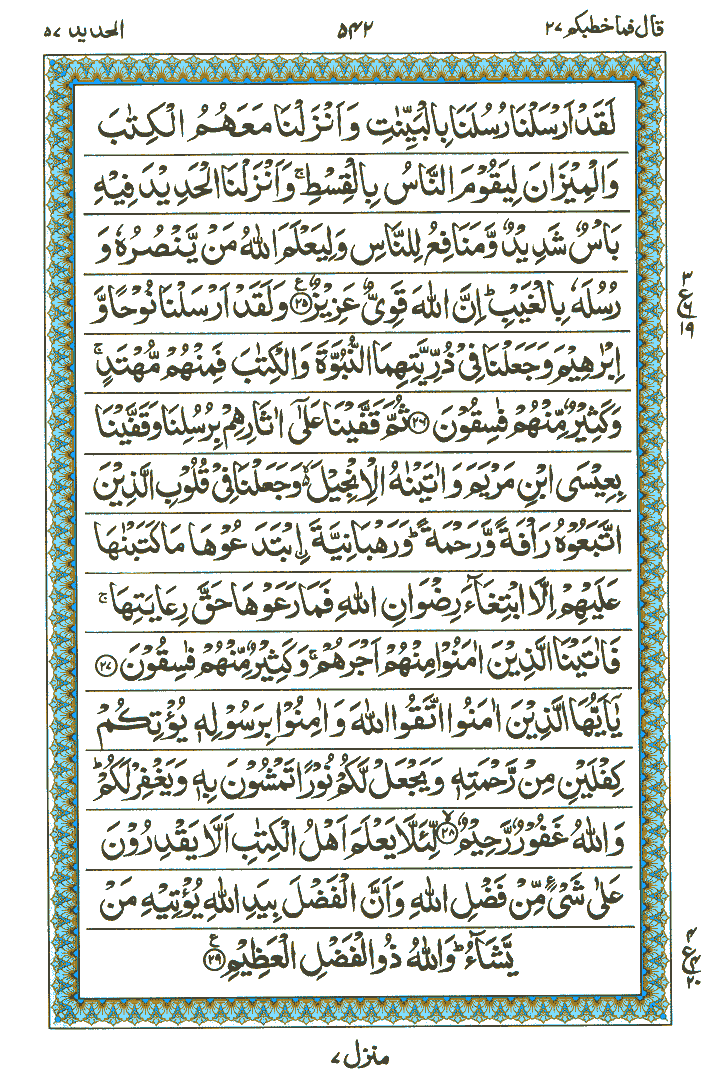 قال فما خطبكم ۲۷ ۵۴۲ الحديد ۵۷
لَقَدْ اَرْسَلْنَا رُسُلَنَا بِالْبَيِّنٰتِ وَاَنْزَلْنَا مَعَهُمُ الْكِتٰبَ
وَالْمِيْزَانَ لِيَقُوْمَ النَّاسُ بِالْقِسْطِ ۚ وَاَنْزَلْنَا الْحَدِيْدَ فِيْهِ
بَاْسٌ شَدِيْدٌ وَّمَنَافِعُ لِلنَّاسِ وَلِيَعْلَمَ اللّٰهُ مَنْ يَّنْصُرُهٗ وَ
رُسُلَهٗ بِالْغَيْبِ ؕ اِنَّ اللّٰهَ قَوِيٌّ عَزِيْزٌ ۧ۲۵ وَلَقَدْ اَرْسَلْنَا نُوْحًا وَّ
اِبْرٰهِيْمَ وَجَعَلْنَا فِيْ ذُرِّيَّتِهِمَا النُّبُوَّةَ وَالْكِتٰبَ فَمِنْهُمْ مُّهْتَدٍ ۚ
وَكَثِيْرٌ مِّنْهُمْ فٰسِقُوْنَ ۲۶ ثُمَّ قَفَّيْنَا عَلٰٓى اٰثَارِهِمْ بِرُسُلِنَا وَقَفَّيْنَا
بِعِيْسَى ابْنِ مَرْيَمَ وَاٰتَيْنٰهُ الْاِنْجِيْلَ ۙ۬ وَجَعَلْنَا فِيْ قُلُوْبِ الَّذِيْنَ
اتَّبَعُوْهُ رَاْفَةً وَّرَحْمَةً ؕ وَرَهْبَانِيَّةَ ِۨابْتَدَعُوْهَا مَا كَتَبْنٰهَا
عَلَيْهِمْ اِلَّا ابْتِغَآءَ رِضْوَانِ اللّٰهِ فَمَا رَعَوْهَا حَقَّ رِعَايَتِهَا ۚ
فَاٰتَيْنَا الَّذِيْنَ اٰمَنُوْا مِنْهُمْ اَجْرَهُمْ ۚ وَكَثِيْرٌ مِّنْهُمْ فٰسِقُوْنَ ۲۷
يٰۤاَيُّهَا الَّذِيْنَ اٰمَنُوا اتَّقُوا اللّٰهَ وَاٰمِنُوْا بِرَسُوْلِهٖ يُؤْتِكُمْ
كِفْلَيْنِ مِنْ رَّحْمَتِهٖ وَيَجْعَلْ لَّكُمْ نُوْرًا تَمْشُوْنَ بِهٖ وَيَغْفِرْ لَكُمْ ؕ
وَاللّٰهُ غَفُوْرٌ رَّحِيْمٌ ۙ۲۸ لِّئَلَّا يَعْلَمَ اَهْلُ الْكِتٰبِ اَلَّا يَقْدِرُوْنَ
عَلٰى شَيْءٍ مِّنْ فَضْلِ اللّٰهِ وَاَنَّ الْفَضْلَ بِيَدِ اللّٰهِ يُؤْتِيْهِ مَنْ
يَّشَآءُ ؕ وَاللّٰهُ ذُو الْفَضْلِ الْعَظِيْمِ ۧ۲۹
۳
ع
۶
۱۹
۴
ع
۴
۲۰
منزل ۷